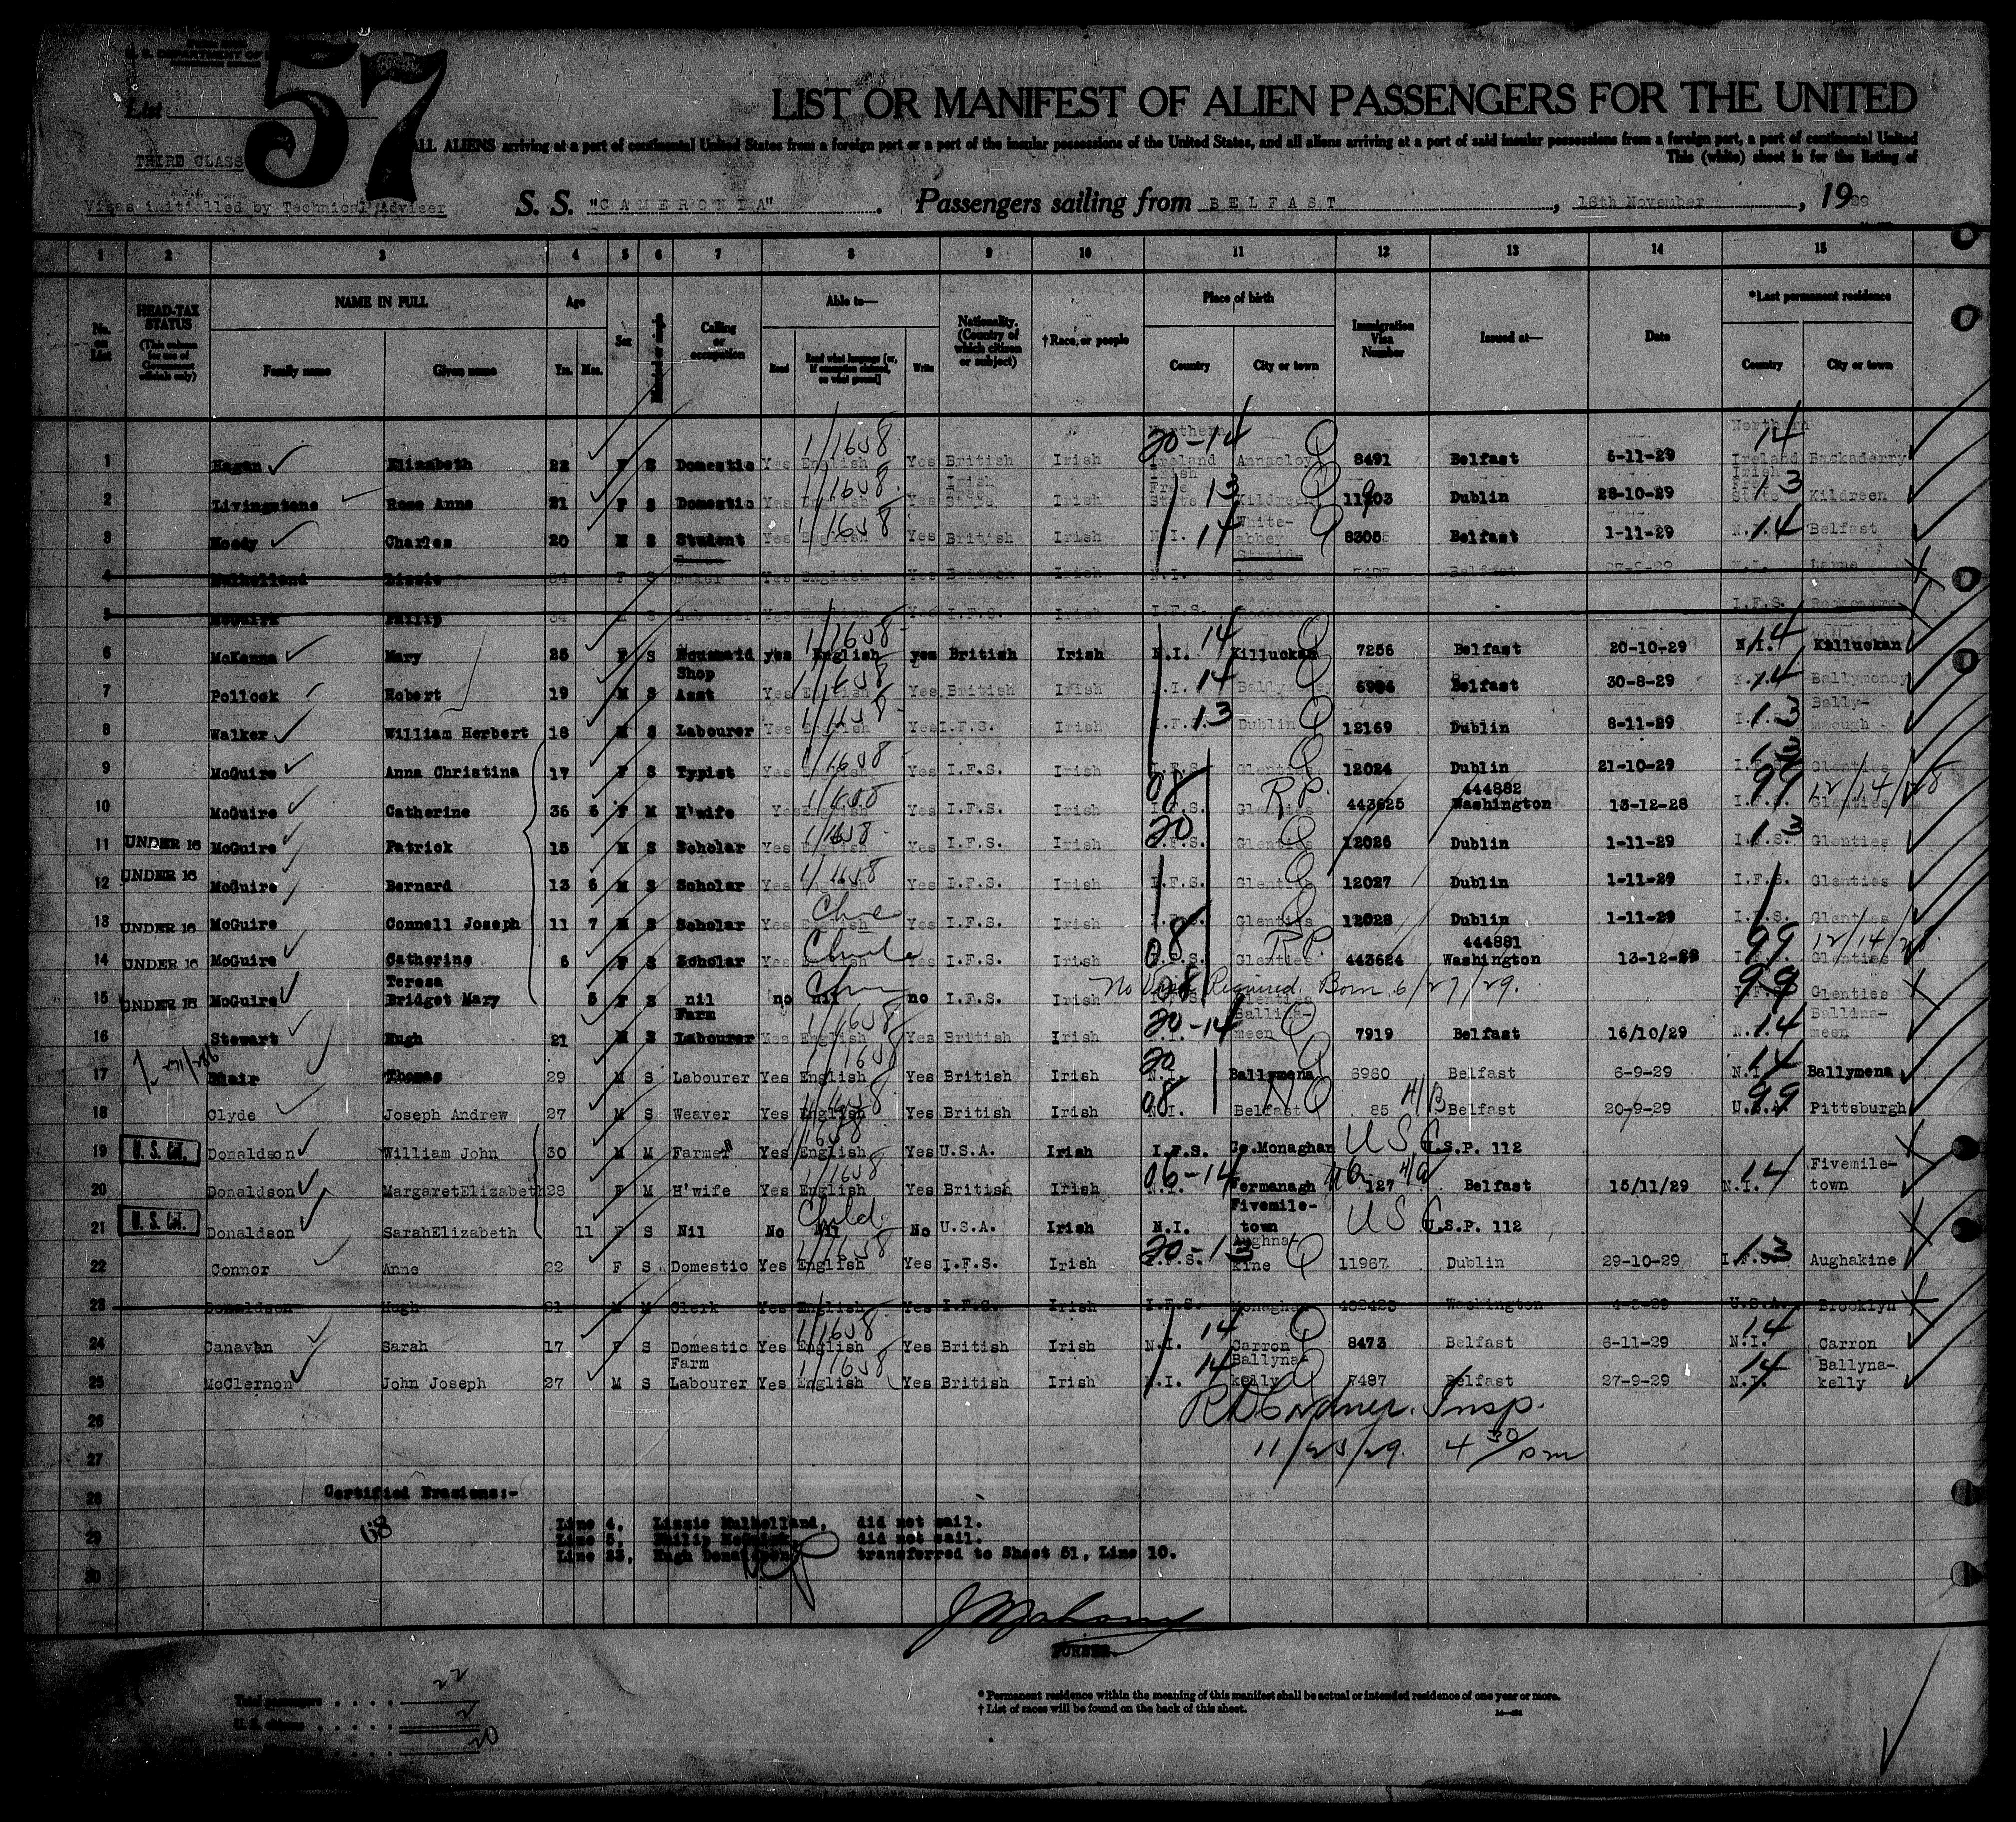 57
List
LIST OR MANIFEST OF ALIEN PASSENGERS FOR THE UNITED
ALL ALIENS arriving at a port of continental United States from a foreign port or a port of the insular possessions of the United States, and all aliens arriving at a port of said insular possessions from a foreign port, a port of continental United
This (white) sheet is for the listing of
THIRD CLASS
Visas initialled by Technical Adviser
S. S. "CAMERONIA". Passengers sailing from BELFAST, 16th November, 1929
1 2 3 4 5 6 7 8 9 10 11 12 13 14 15
No. on List
HEAD-TAX STATUS (This column for use of Government officials only)
NAME IN FULL Family name Given name
Age Yrs. Mos.
Sex
Married or single
Calling or occupation
Able to— Read Read what language [or, if exemption claimed, on what ground] Write
Nationality. (Country of which citizen or subject)
† Race, or people
Place of birth Country City or town
Immigration Visa Number
Issued at—
Date
* Last permanent residence Country City or town
1 Hagan Elizabeth 22 F S Domestic Yes English Yes British Irish Northern Ireland Annacloy 8491 Belfast 5-11-29 Northern Ireland Backaderry
2 Livingstone Rose Anne 21 F S Domestic Yes English Yes Irish Free State Irish Irish Free State Kildreen 11203 Dublin 28-10-29 Irish Free State Kildreen
3 Moody Charles 20 M S Student Yes English Yes British Irish N.I. White-abbey 8305 Belfast 1-11-29 N.I. Belfast
4 Mulholland Lizzie 34 F S Yes English Yes British Irish N.I. Belfast 27-9-29 N.I. Larne
5 McGuirk Philip 34 M S Labourer Yes English Yes I.F.S. Irish I.F.S. I.F.S.
6 McKenna Mary 25 F S Housmaid yes English yes British Irish N.I. Killuckan 7256 Belfast 20-10-29 N.I. Killuckan
7 Pollock Robert 19 M S Shop Asst Yes English Yes British Irish N.I. Belfast 30-8-29 N.I. Ballymoney
8 Walker William Herbert 18 M S Labourer Yes English Yes I.F.S. Irish I.F.S. Dublin 12169 Dublin 8-11-29 I.F.S.
9 McGuire Anna Christina 17 F S Typist Yes English Yes I.F.S. Irish I.F.S. Glenties 12024 Dublin 21-10-29 I.F.S. Glenties
10 McGuire Catherine 36 5 F M H'wife Yes English Yes I.F.S. Irish I.F.S. Glenties RP. 443625 444882 Washington 13-12-28 I.F.S. Glenties 12/14/28
11 UNDER 16 McGuire Patrick 15 M S Scholar Yes English Yes I.F.S. Irish I.F.S. Glenties 12026 Dublin 1-11-29 I.F.S. Glenties
12 UNDER 16 McGuire Bernard 13 6 M S Scholar Yes English Yes I.F.S. Irish I.F.S. Glenties 12027 Dublin 1-11-29 I.F.S. Glenties
13 UNDER 16 McGuire Connell Joseph 11 7 M S Scholar Yes English Yes I.F.S. Irish I.F.S. Glenties 12028 Dublin 1-11-29 I.F.S. Glenties
14 UNDER 16 McGuire Catherine 6 F S Scholar Yes English Yes I.F.S. Irish I.F.S. Glenties RP. 443624 444881 Washington 13-12-28 I.F.S. Glenties 12/14/28
15 UNDER 16 McGuire Teresa Bridget Mary 5 F S nil no nil no I.F.S. Irish No Visa Required. Born 6/27/29. I.F.S. Glenties
16 Stewart Hugh 21 M S Farm Labourer Yes English Yes British Irish N.I. Ballina-meen 7919 Belfast 16/10/29 N.I. Ballina-meen
17 Blair Thomas 29 M S Labourer Yes English Yes British Irish N.I. Ballymena 6960 Belfast 6-9-29 N.I. Ballymena
18 Clyde Joseph Andrew 27 M S Weaver Yes English Yes British Irish N.I. Belfast 85 Belfast 20-9-29 U.S.A. Pittsburgh
19 U. S. Cit. Donaldson William John 30 M M Farmer Yes English Yes U.S.A. Irish I.F.S. Co.Monaghan USC U.S.P. 112
20 Donaldson MargaretElizabeth 28 F M H'wife Yes English Yes British Irish N.I. Fermanagh 127 Belfast 15/11/29 N.I. Fivemile-town
21 U. S. Cit. Donaldson SarahElizabeth 11 F S Nil No Nil No U.S.A. Irish N.I. Fivemile-town USC U.S.P. 112
22 Connor Anne 22 F S Domestic Yes English Yes I.F.S. Irish I.F.S. Aughna-kine 11987 Dublin 29-10-29 I.F.S. Aughakine
23 Donaldson Hugh 21 M M Clerk Yes English Yes I.F.S. Irish I.F.S. Monaghan 482423 Washington 4-5-29 U.S.A. Brooklyn
24 Canavan Sarah 17 F S Domestic Yes English Yes British Irish N.I. Carron 8473 Belfast 6-11-29 N.I. Carron
25 McClernon John Joseph 27 M S Farm Labourer Yes English Yes British Irish N.I. Ballyna-kelly 7487 Belfast 27-9-29 N.I. Ballyna-kelly
26
27
28
29
30
Insp.
11/25/29. 4 30/pm
Certified Erasions:-
68
Line 4, Lizzie Mulholland, did not sail.
Line 5, Philip McGuirk, did not sail.
Line 23, Hugh Donaldson, transferred to Sheet 51, Line 10.
PURSER.
Total passengers . . . . 22
U. S. citizens . . . . . 2
20
* Permanent residence within the meaning of this manifest shall be actual or intended residence of one year or more.
† List of races will be found on the back of this sheet.